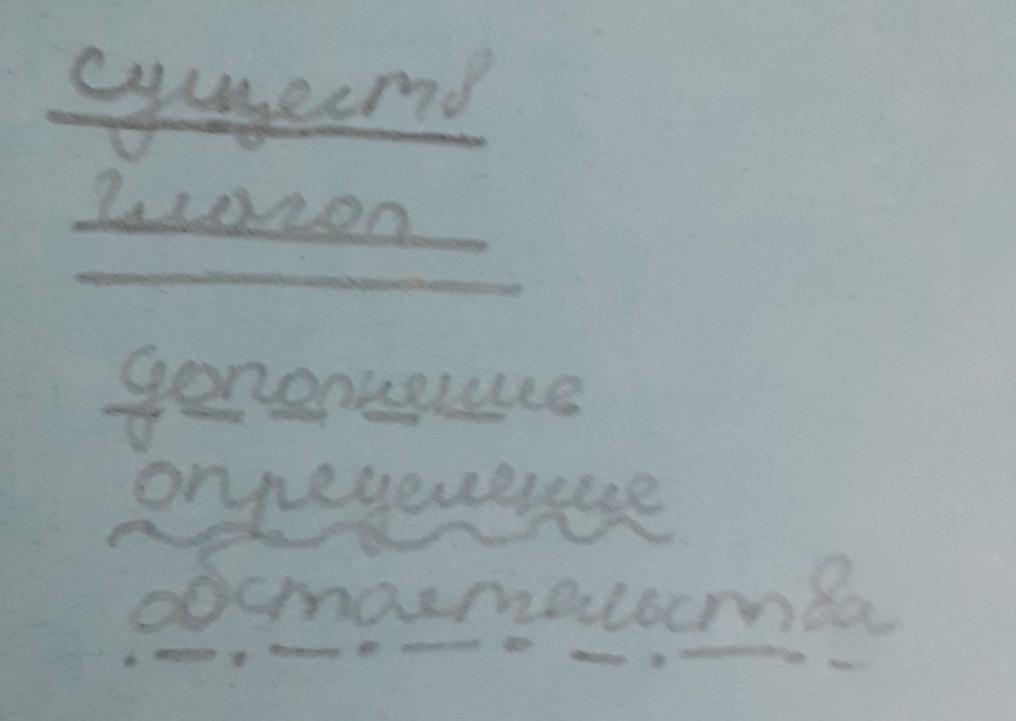 существ
глагол
дополнение
определение
обстоятельства